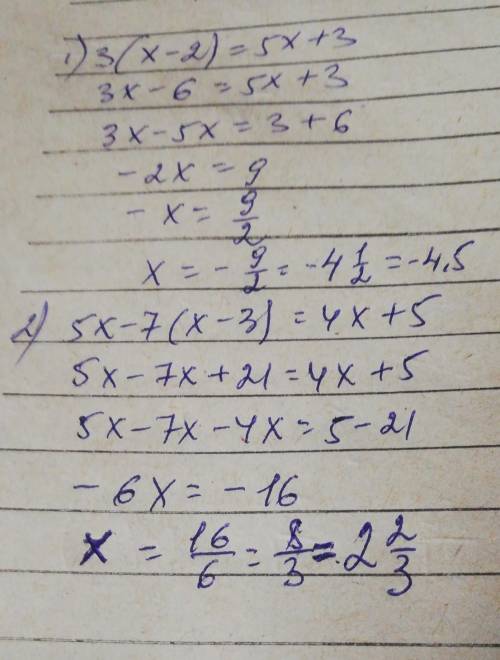 1) 3(x-2)=5x+3
3x-6=5x+3
3x-5x=3+6
-2x=9
-x=9/2
x=-9/2=-4 1/2=-4,5
2) 5x-7(x-3)=4x+5
5x-7x+21=4x+5
5x-7x-4x=5-21
-6x=-16
x=16/6=8/3=2 2/3